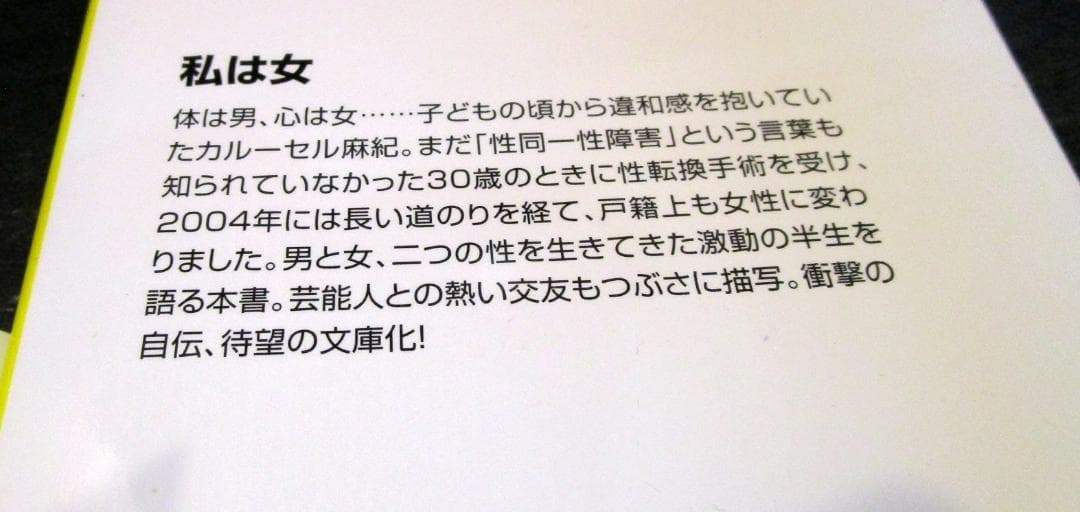 私は女
体は男、心は女……子どもの頃から違和感を抱いてい
たカルーセル麻紀。まだ「性同一性障害」という言葉も
知られていなかった30歳のときに性転換手術を受け、
2004年には長い道のりを経て、戸籍上も女性に変わ
りました。男と女、二つの性を生きてきた激動の半生を
語る本書。芸能人との熱い交友もつぶさに描写。衝撃の
自伝、待望の文庫化!